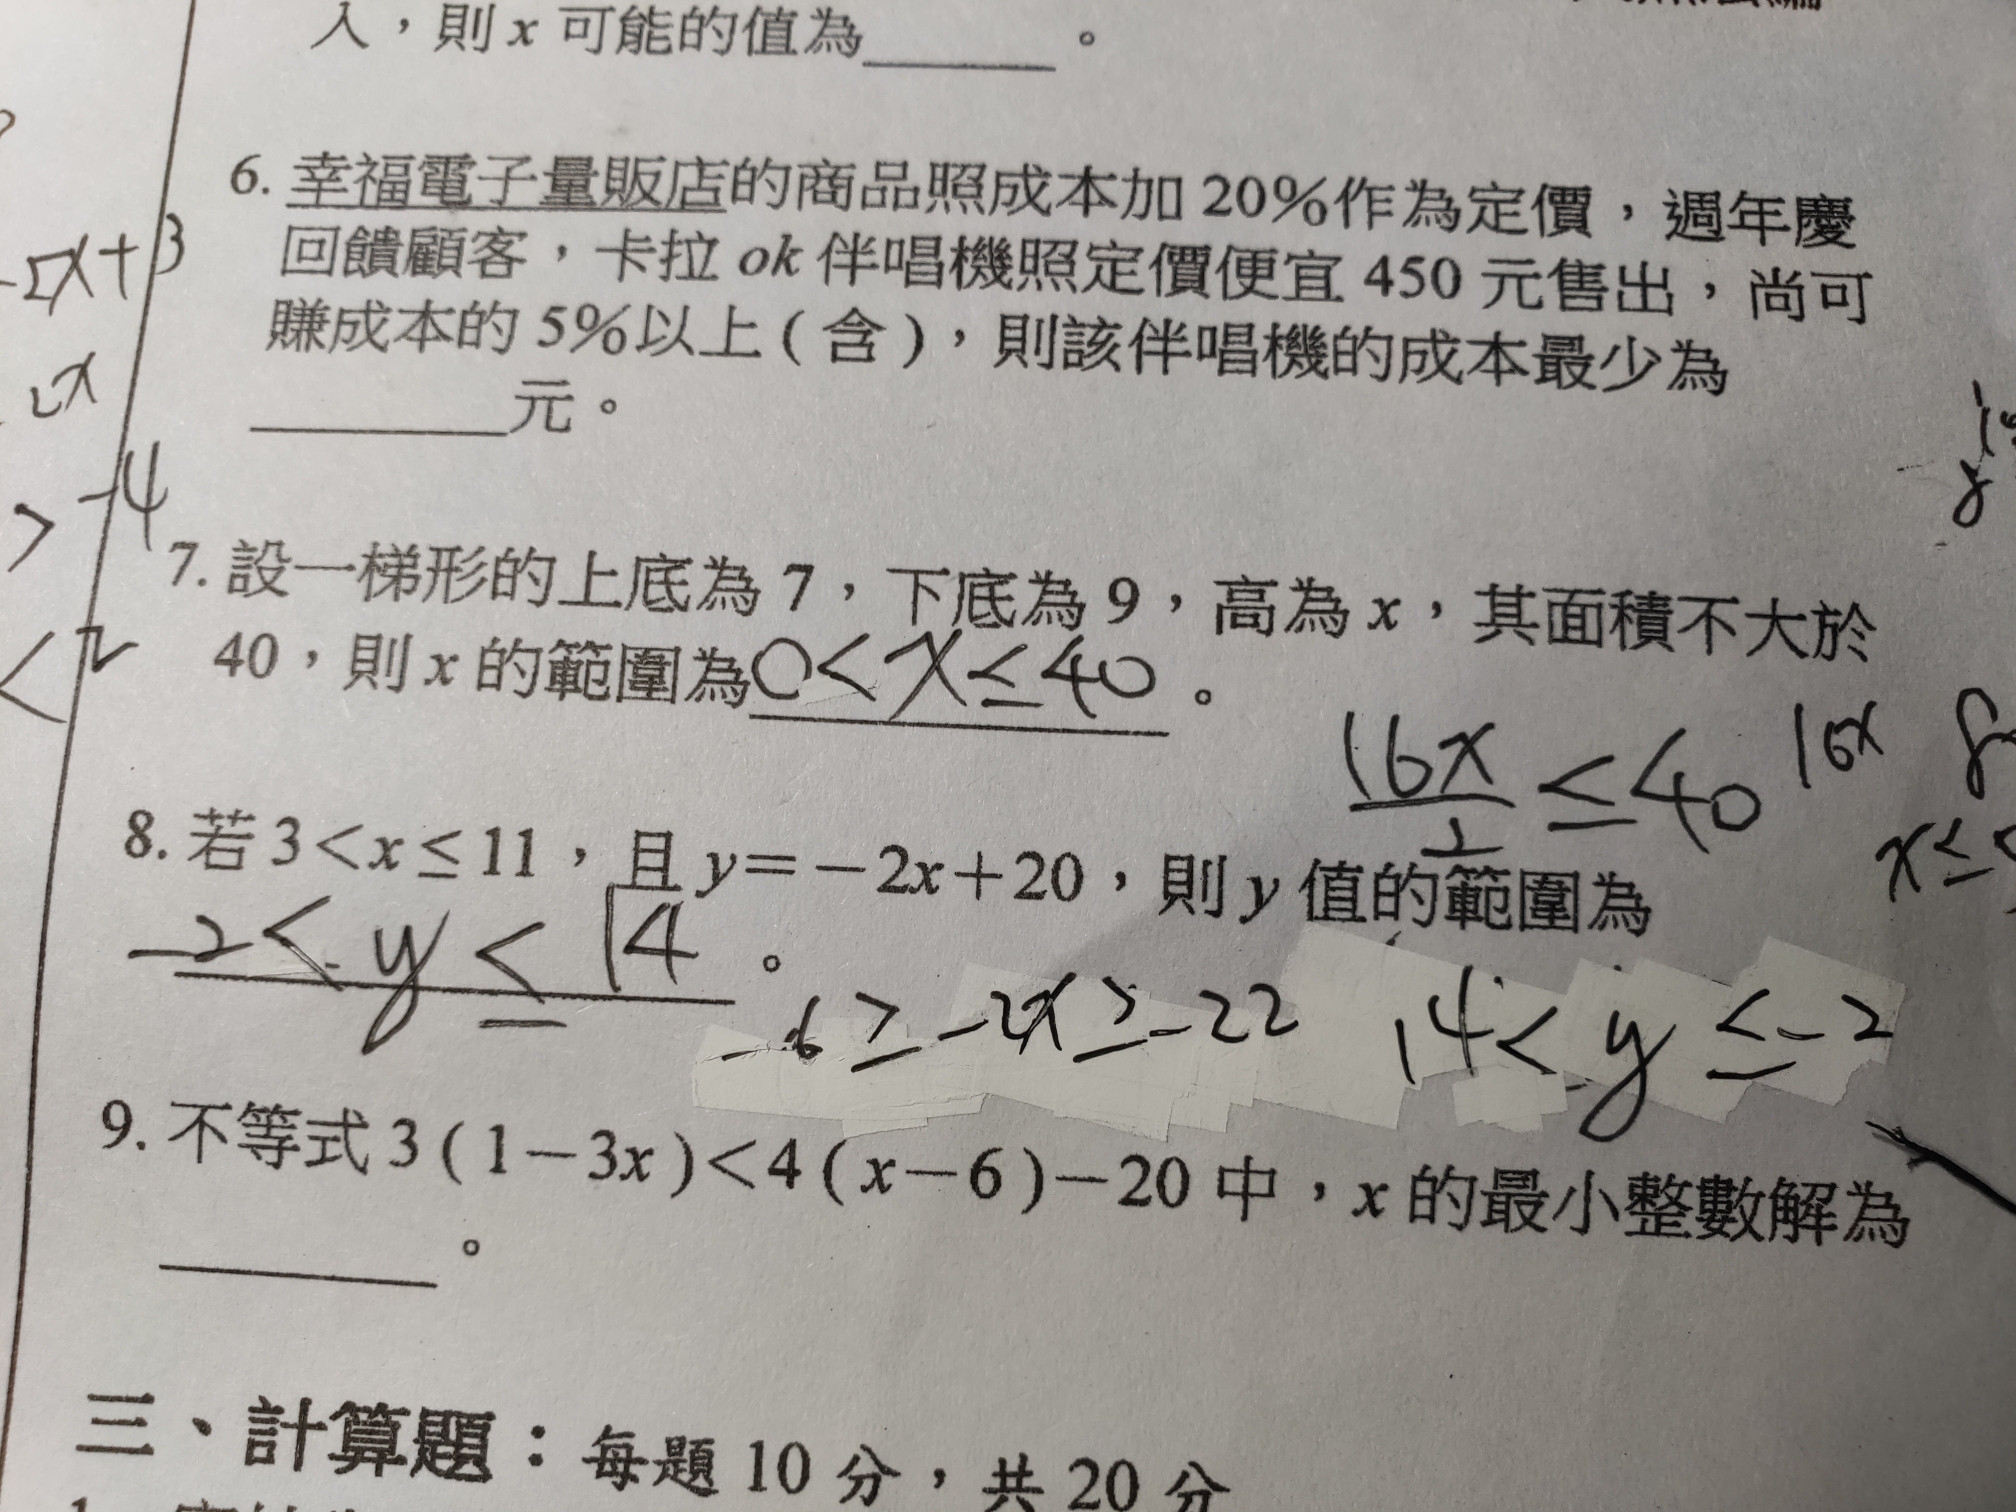 入，則 x 可能的值為______。
6. 幸福電子量販店的商品照成本加 20%作為定價，週年慶
回饋顧客，卡拉 ok 伴唱機照定價便宜 450 元售出，尚可
賺成本的 5%以上(含)，則該伴唱機的成本最少為
________元。
x+3
x
> -4
< 2
7. 設一梯形的上底為 7，下底為 9，高為 x，其面積不大於
40，則 x 的範圍為0<x≤40。
16x/2 ≤40
16x
x≤
8. 若 3<x≤11，且 y=-2x+20，則 y 值的範圍為
-2< y ≤ 14。
-6≥-2x≥-22
14< y ≤-2
9. 不等式 3(1-3x)<4(x-6)-20 中，x 的最小整數解為
________。
三、計算題：每題 10 分，共 20 分